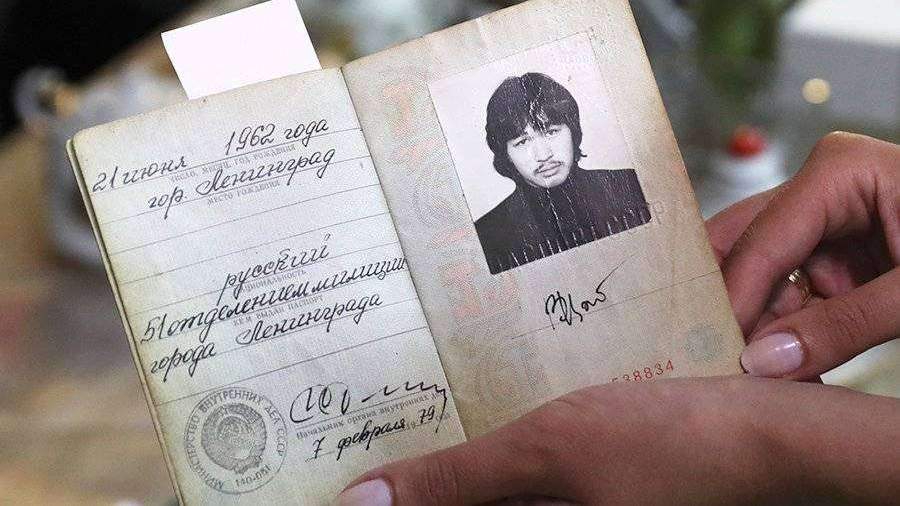 21 июня 1962 года
ЧИСЛО, МЕСЯЦ, ГОД РОЖДЕНИЯ
гор. Ленинград
МЕСТО РОЖДЕНИЯ
русский
НАЦИОНАЛЬНОСТЬ
51 отделением милиции
КЕМ ВЫДАН ПАСПОРТ
города Ленинграда
Начальник органа внутренних дел
7 февраля 79
МИНИСТЕРСТВО ВНУТРЕННИХ ДЕЛ СССР
140-051
СССР
В Цой
538834